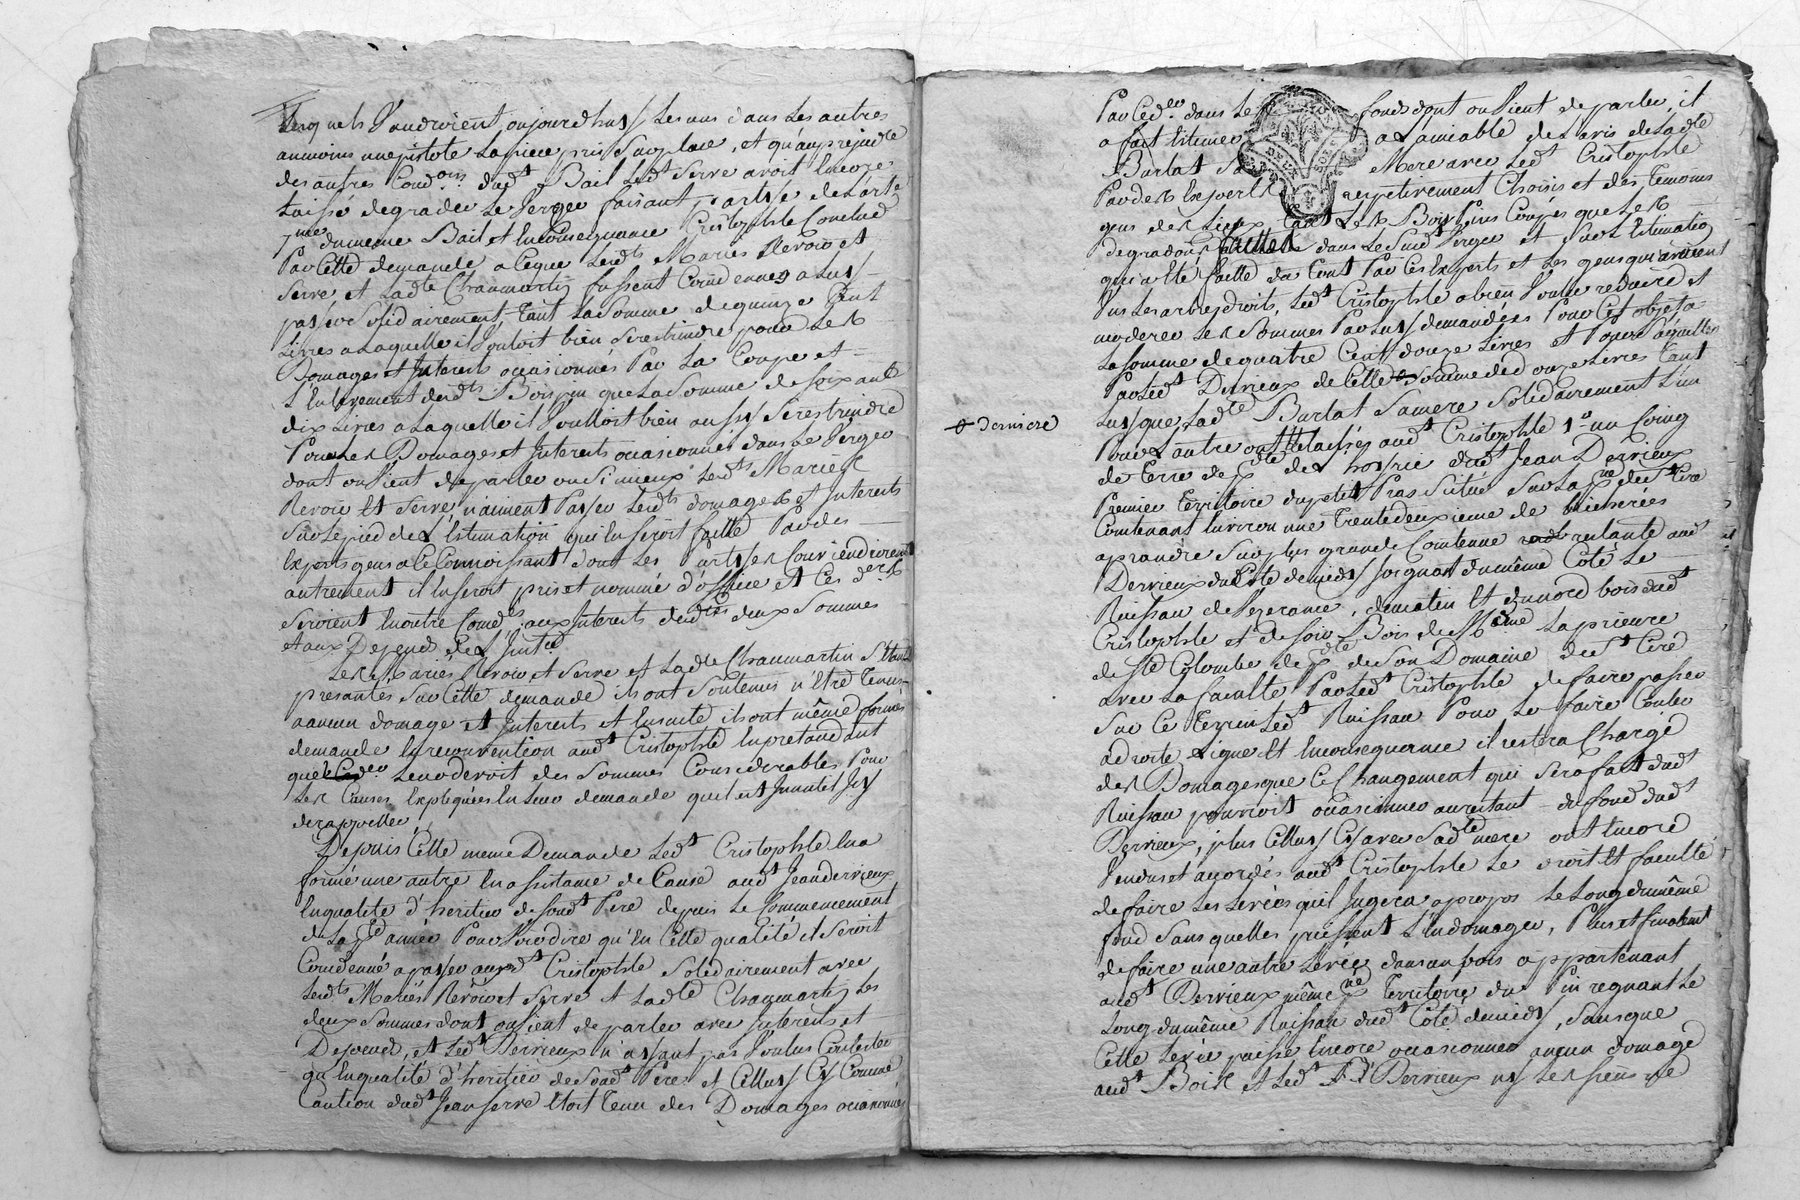 lesquels Vaudroient aujourd'huy les uns dans les autres
aumoins une pistole la piece pris surplace, et qu'au prejudice
des autres Condons dudt Bail ledt Serre avoit Encore
laissé degrader le Verger faisant partie de l'arte
7me dumeme Bail et En Consequence Cristophle Conclud
Par Cette demande aceque lesdts Mariés Revoir et
Serre et ladte Chaumartin fussent Condennes a luy
payer Solidairement tant la Somme de quinze Cent
Livres a laquelle il Vouloit bien serestrindre pour les
Domages et Interets occasionnés Par la Coupe et
L'Enlevement desdts Bois que la Somme de soixante
dix Livres a laquelle il Voulloit bien aussy Serestrindre
Pour les Domages et Interets ocasionnés dans le Verger
dont on Vient de parler ou Si mieux lesdts Mariés
Revoir et Serre n'aiment Payer lesdts domages et Interets
Sur le pied de L'Estimation qui En seroit faitte Par des
Experts gens a Ce Connoissant dont les Parties Conviendroient
autrement il En seroit pris et nommé d'office et Ces ders
Seroient En outre Comdés aux Interets desdtes deux Sommes
et aux Depend de L'Instce
Les Mariés Revoir et Serre et Ladte Chaumartin S'étant
presantés Sur Cette demande ils ont Soutenus n'Etre Tenus
aaucun domage et Interets et Ensuite ils ont même formés
demande En reconvention audt Cristophle En pretandant
que Leur devoit des Sommes Considerables Pour
les Causes Expliquées En leur demande quil est Innutil Icy
de rappeller
Depuis Cette meme Demande ledt Cristophle En a
formé une autre En assistance de Cause audt Jean Derrieux
En qualité d'heritier de sondt Pere depuis le Commencement
de la pte année Pour Voir dire qu'En Cette qualité il Seroit
Condenné a payer audt Cristophle Solidairement avec
lesdts Mariés Revoir et Serre et ladte Chaumartin les
deux Sommes dont on Vient de parler avec Interets et
Depend, et ledt Derrieux n'ayant pas Voulus Contester
qu'En qualité d'heritier de Sondt Pere et Celluy Cy Comme
Caution dudt Jean Serre Etoit Tenu des Domages ocasionnés
Par Ceder dans le fonds dont on Vient de parler, il
a fait Estimer a L'amiable de L'avis de Ladte
Burlat Sa Mere avec ledt Cristophle
Par des Experts respectivement Choisis et des Temoins
gens des Lieux, tant les Bois Pins Coupés que les
degradons faittes dans le Susdt Verger et Sur L'Estimation
qui a Eté faitte du tout Par Ces Experts et les gens qui avoient
Vus les arbres droits, ledt Cristophle a bien Voulu reduire et
moderer les Sommes Par luy demandées Pour Cet objet a
la Somme de quatre Cent douze Livres et Pour
Par ledt Derrieux de Cette Somme de douze Livres tant
luy que ladte Burlat Sa mere Solidairement L'un
Pour L'autre ont relaché audt Cristophle 1º un Coing
⌀ derniere
de Terre de pte de L'hoirie dudt Jean Derrieux
Premier Territoire du petit Pras Situé Sur la pse dudt
Contenant Environ une Trente deuxieme de bicherées
aprandre Sur plus grande Contenue restante audt
Derrieux du Coté de midy Joignant du même Coté le
Ruisseau de Vezerance, de matin et du nord bois dudt
Cristophle et de soir Bois de Made la prieure
de Ste Colombe de pte de Son Domaine de St Ciré
avec la faculté Par ledt Cristophle de faire passer
Sur Ce Terrein ledt Ruisseau Pour le faire Couler
a droite Ligne et En Consequence il restera Chargé
des Domages que Ce Changement qui Sera fait dudt
Ruisseau pourroit ocasionner au restant du fond dudt
Derrieux, plus Celluy Cy avec Sadte mere ont Encore
Vendus et accordés audt Cristophle le droit et faculté
de faire les Levées qu'il Jugera apropos le Long dumême
fond Sans quelles puissent L'Endomager, Plus et finalemt
de faire une autre Levée dans un bois appartenant
audt Derrieux même Territoire du Pin regnant le
Long dumême Ruisseau dudt Coté de midy, Sans que
Cette Levée puisse Encore ocasionner aucun domage
audt Bois et ledt Sr Derrieux ny les siens ne